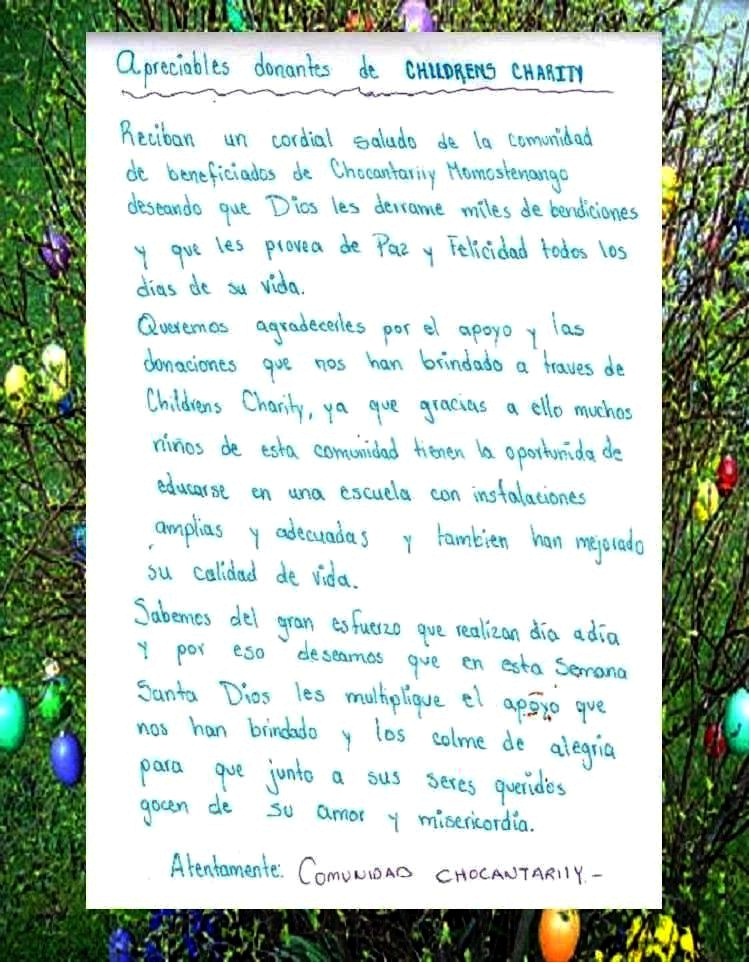 Apreciables donantes de CHILDRENS CHARITY
Reciban un cordial saludo de la comunidad
de beneficiados de Chocantariiy Momostenango
deseando que Dios les derrame miles de bendiciones
y que les provea de Paz y Felicidad todos los
días de su vida.
Queremos agradecerles por el apoyo y las
donaciones que nos han brindado a traves de
Childrens Charity, ya que gracias a ello muchos
niños de esta comunidad tienen la oportunida de
educarse en una escuela con instalaciones
amplias y adecuadas y tambien han mejorado
su calidad de vida.
Sabemos del gran esfuerzo que realizan día a día
y por eso deseamos que en esta Semana
Santa Dios les multiplique el apoyo que
nos han brindado y los colme de alegria
para que junto a sus seres queridos
gocen de su amor y misericordia.
Atentamente: COMUNIDAD CHOCANTARIIY.-